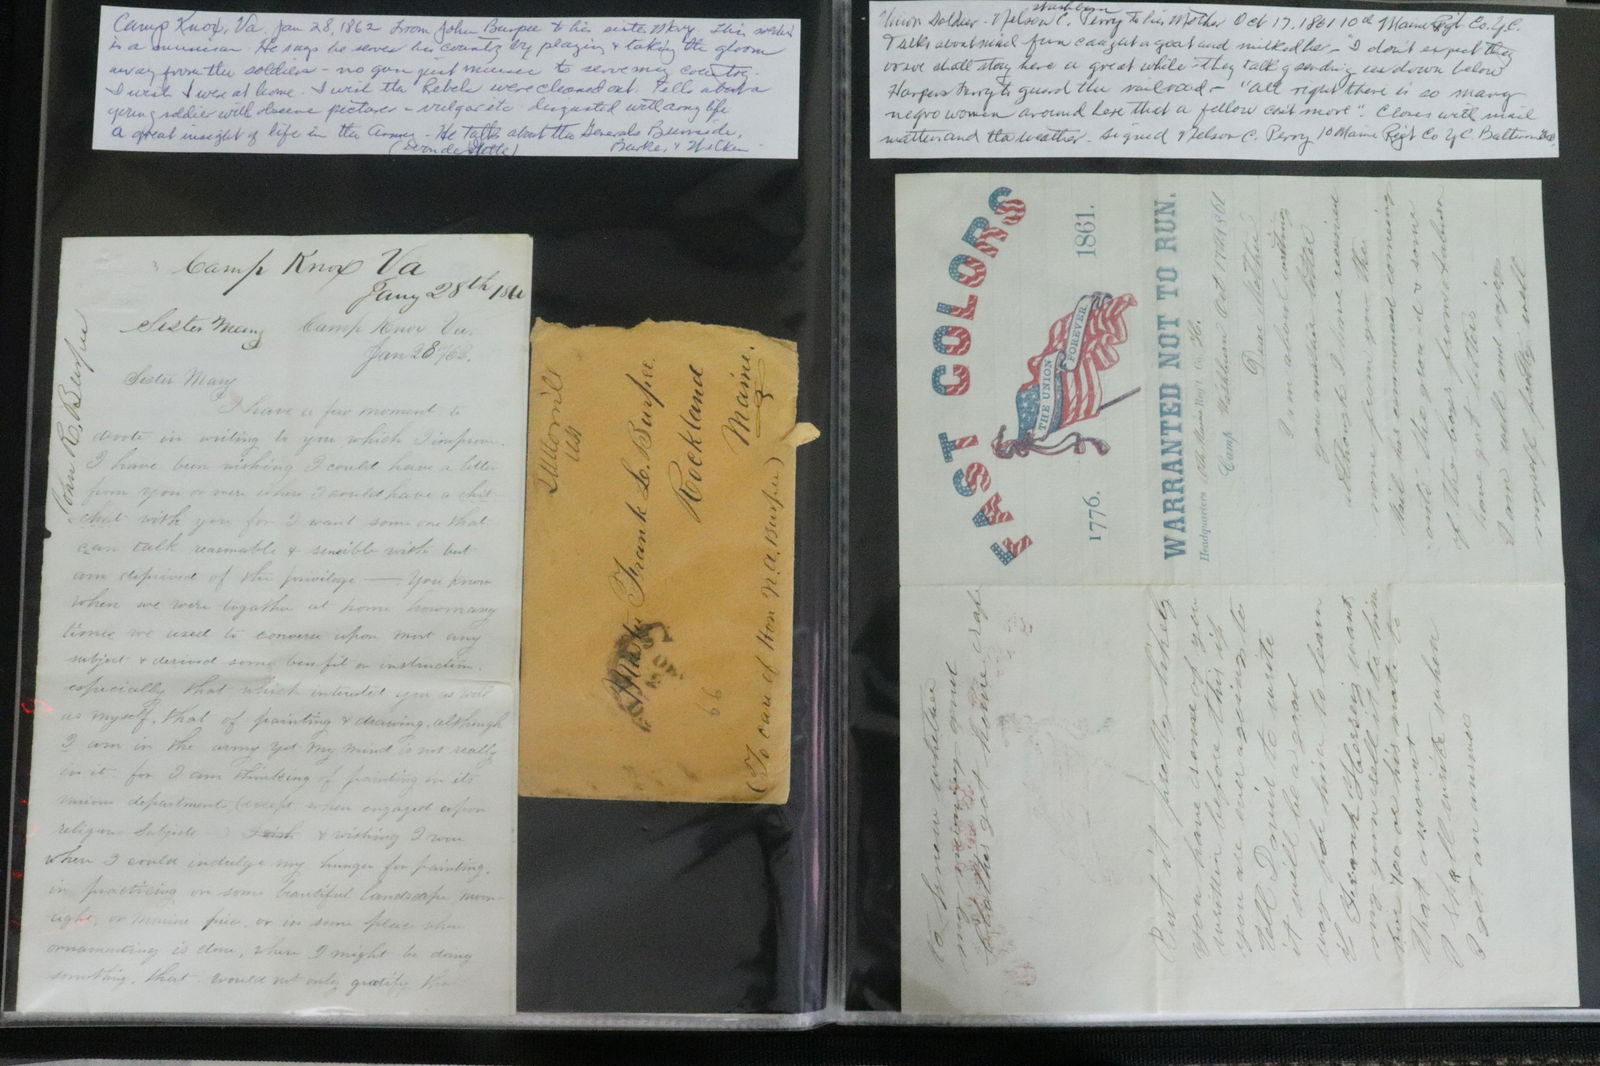 Camp Knox, Va, Jan 28, 1862 From John Burpee to his sister Mary. This soldier
is a musician. He says he serves his country by playing & taking the gloom
away from the soldiers - no gun just music to serve my country.
I wish I were at home. I wish the Rebels were cleaned out. Tells about a
young soldier with obscene pictures - vulgar etc. disgusted with army life
a great insight of life in the Army - He talks about the Generals Burnside,
Burke, &
Camp Knox Va
Jany 28th 186
Sister Mary
Camp Knox Va.
Jan 28/62.
Sister Mary
John R. Burpee
I have a few moment to
devote in writing to you which I improve.
I have been wishing I could have a letter
from you or were where I could have a chit
chat with you for I want some one that
can talk reasonable & sensible with but
am deprived of the privilege — You know
when we were together at home how many
times we used to converse upon most any
subject & derived some benefit or instruction.
especially that which interested you as well
as myself, that of painting & drawing, although
I am in the army yet my mind is not really
in it for I am thinking of painting in its
various department, except when engaged upon
religious subjects & wishing I were
where I could indulge my hunger for painting,
in practicing on some beautiful landscape, moon-
light, or marine piece, or in some place where
ornamenting is done, where I might be doing
something, that would not only gratify the
L M Morrill
US
Master Frank L. Burpee
Rockland
Maine.
(To care of Hon N. A. Burpee)
66
Union Soldier - Nelson C. Perry to his Mother Oct 17, 1861 10th Maine Regt Co. G.
Washburn
Talks about mail fun caught a goat and milked her - "I don't expect they
or we shall stay here a great while they talk of sending us down below
Harpers Ferry to guard the railroad - "all right there is so many
negro women around here that a fellow can't move". Closes with mail
matters and the weather. Signed Nelson C. Perry 10 Maine Regt Co G. Baltimore
FAST COLORS
1776. 1861.
THE UNION FOREVER
WARRANTED NOT TO RUN.
Headquarters 10th Maine Regt. Co. H.
Camp Washburn Oct 17th 1861
Dear Mother
I am about writing
you another letter
although I have received
none from you the
mail has commenced coming
onto the ground & some
of the boys from Auburn
have got letters
I am well and enjoy
myself pretty well
to know whether
my money and
clothes got home safe
But it is pretty likely
you have some of you
written before this if
you are ever going to
tell David to write
it will be a good
way for him to learn
if Frank Hersey wants
my gun sell it to him
he gave his note to
that amount
I shall write when
I get an answer